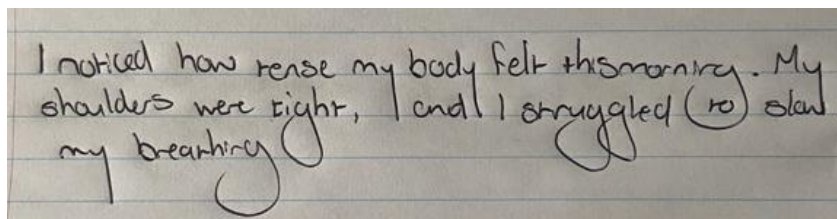 I noticed how tense my body felt this morning. My
shoulders were tight, and I struggled to slow
my breathing